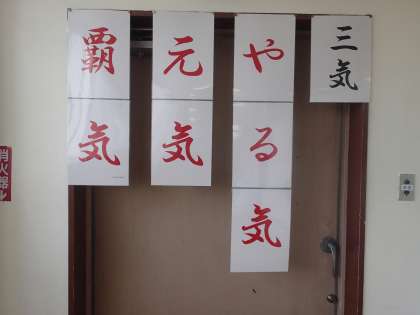 三気
やる気
元気
覇気
消火器